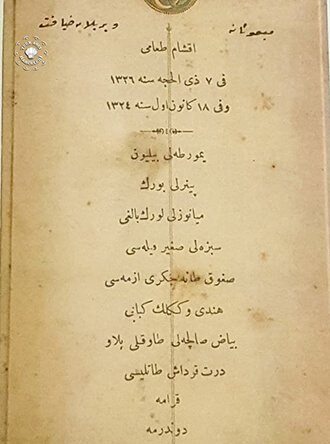 مبعوثانه ويريلان ضيافت
اقشام طعامی
فی ٧ ذی الحجه سنه ١٣٢٦
وفی ١٨ كانون اول سنه ١٣٢٤
يمورطه‌لی بيليون
پينرلی بورك
ميانوزلی لورك بالغی
سبزه‌لی صغير ويله‌سی
صغوق طانه جكری ازمه‌سی
هندی وككلك كبابی
بياض صالچه‌لی طاوقلی پلاو
درت قرداش طاتليسی
قرامه
دوندرمه